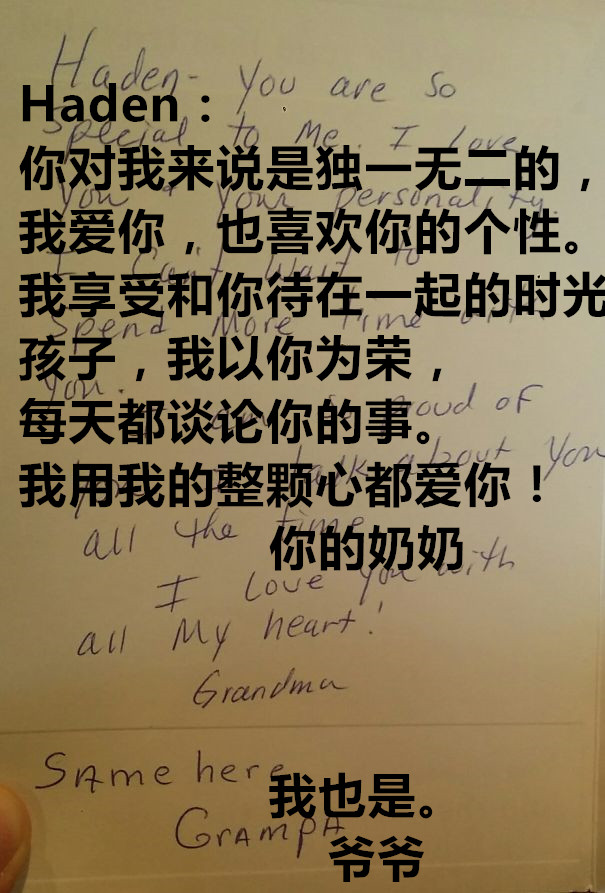 Haden- You are so
Haden：
special to Me. I love
你对我来说是独一无二的，
You + Your personality.
我爱你，也喜欢你的个性。
I Can't Wait to
我享受和你待在一起的时光
Spend More Time with
孩子，我以你为荣，
You.
am so proud of
每天都谈论你的事。
talk about You
我用我的整颗心都爱你！
all the time
你的奶奶
I Love You with
all My heart!
Grandma
Same here
我也是。
Grampa
爷爷